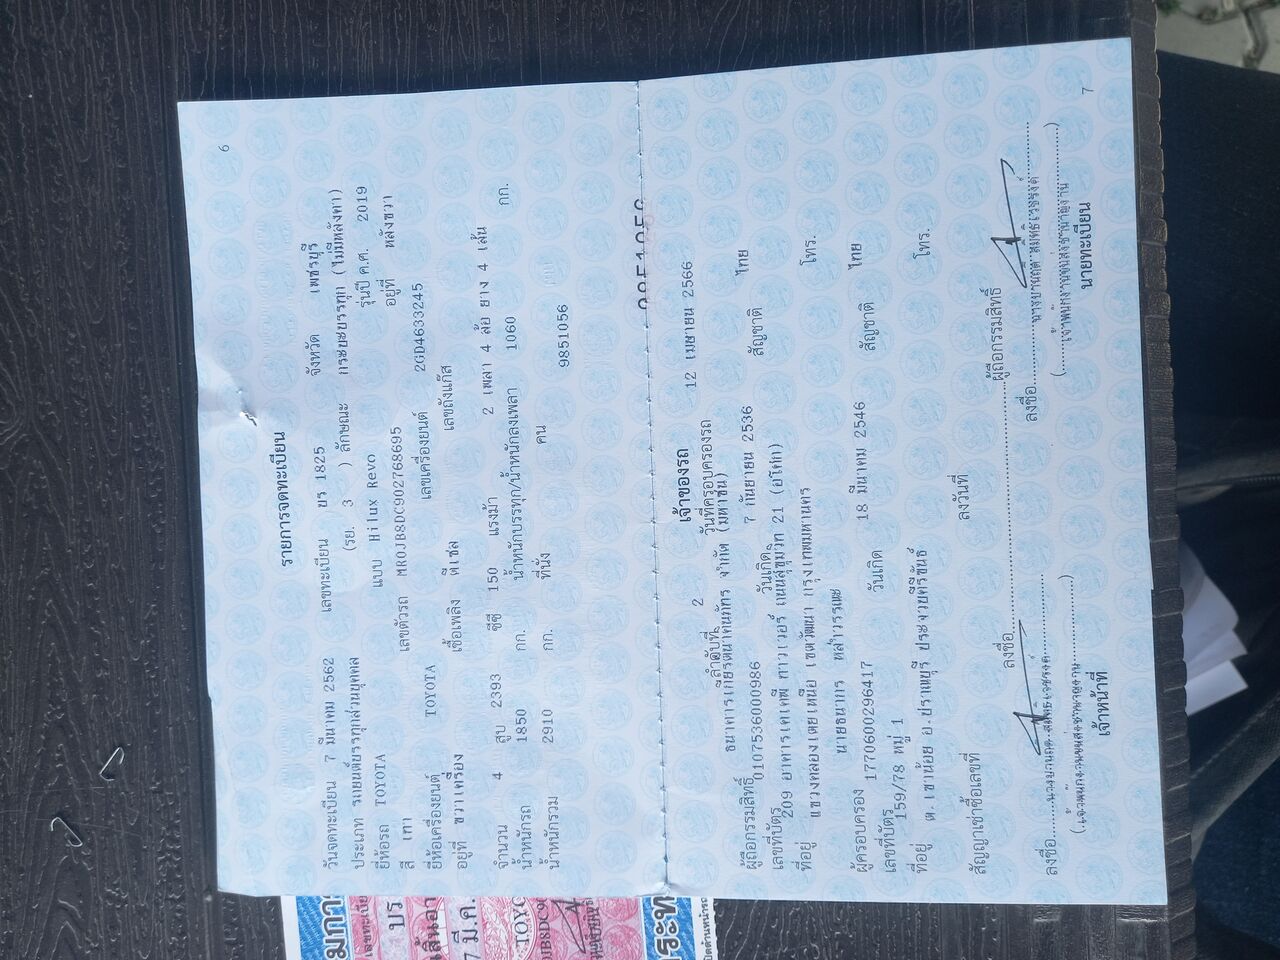 6
รายการจดทะเบียน
วันจดทะเบียน 7 มีนาคม 2562 เลขทะเบียน บร 1825 จังหวัด เพชรบุรี
ประเภท รถยนต์บรรทุกส่วนบุคคล (รย. 3 ) ลักษณะ กระบะบรรทุก (ไม่มีหลังคา)
ยี่ห้อรถ TOYOTA แบบ Hilux Revo รุ่นปี ค.ศ. 2019
สี เทา เลขตัวรถ MR0JB8DC902768695 อยู่ที่ หลังขวา
ยี่ห้อเครื่องยนต์ TOYOTA เลขเครื่องยนต์ 2GD4633245
อยู่ที่ ขวาเครื่อง เชื้อเพลิง ดีเซล เลขถังแก๊ส
จำนวน 4 สูบ 2393 ซีซี 150 แรงม้า 2 เพลา 4 ล้อ ยาง 4 เส้น
น้ำหนักรถ 1850 กก. น้ำหนักบรรทุก/น้ำหนักลงเพลา 1060 กก.
น้ำหนักรวม 2910 กก. ที่นั่ง คน
9851056
เจ้าของรถ
ลำดับที่ 2 วันที่ครอบครองรถ 12 เมษายน 2566
ผู้ถือกรรมสิทธิ์ ธนาคารเกียรตินาคินภัทร จำกัด (มหาชน)
เลขที่บัตร 0107536000986 วันเกิด 7 กันยายน 2536 สัญชาติ ไทย
ที่อยู่ 209 อาคารเคเคพี ทาวเวอร์ ถนนสุขุมวิท 21 (อโศก)
แขวงคลองเตยเหนือ เขตวัฒนา กรุงเทพมหานคร โทร.
ผู้ครอบครอง นายธนากร
เลขที่บัตร 1770600296417 วันเกิด 18 มีนาคม 2546 สัญชาติ ไทย
ที่อยู่ 159/78 หมู่ 1
ต.เขาน้อย อ.ปราณบุรี ประจวบคีรีขันธ์ โทร.
สัญญาเช่าซื้อเลขที่ ลงวันที่
ลงชื่อ ผู้ถือกรรมสิทธิ์
ลงชื่อ ลงชื่อ
เจ้าหน้าที่ นายทะเบียน
7
เลขทะเบียน
บร
7 มี.ค.
TOYO